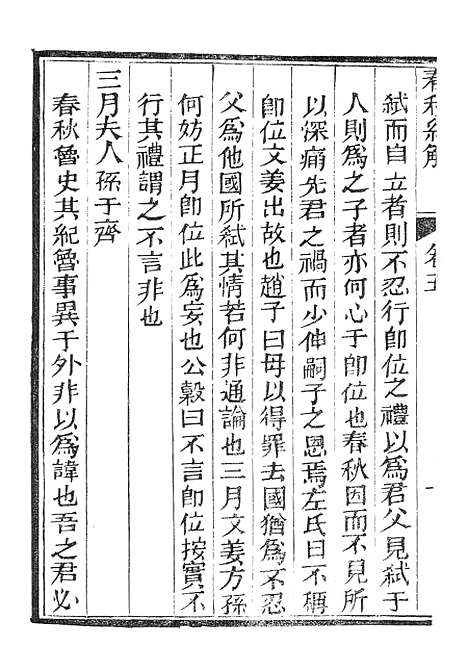 春秋經解
卷五
一
弑而自立者則不忍行卽位之禮以爲君父見弑于
人則爲之子者亦何心于卽位也春秋因而不見所
以深痛先君之禍而少伸嗣子之恩焉左氏曰不稱
卽位文姜出故也趙子曰母以得罪去國猶爲不忍
父爲他國所弑其情若何非通論也三月文姜方孫
何妨正月卽位此爲妄也公穀曰不言卽位按實不
行其禮謂之不言非也
三月夫人孫于齊
春秋魯史其紀魯事異于外非以爲諱也吾之君必